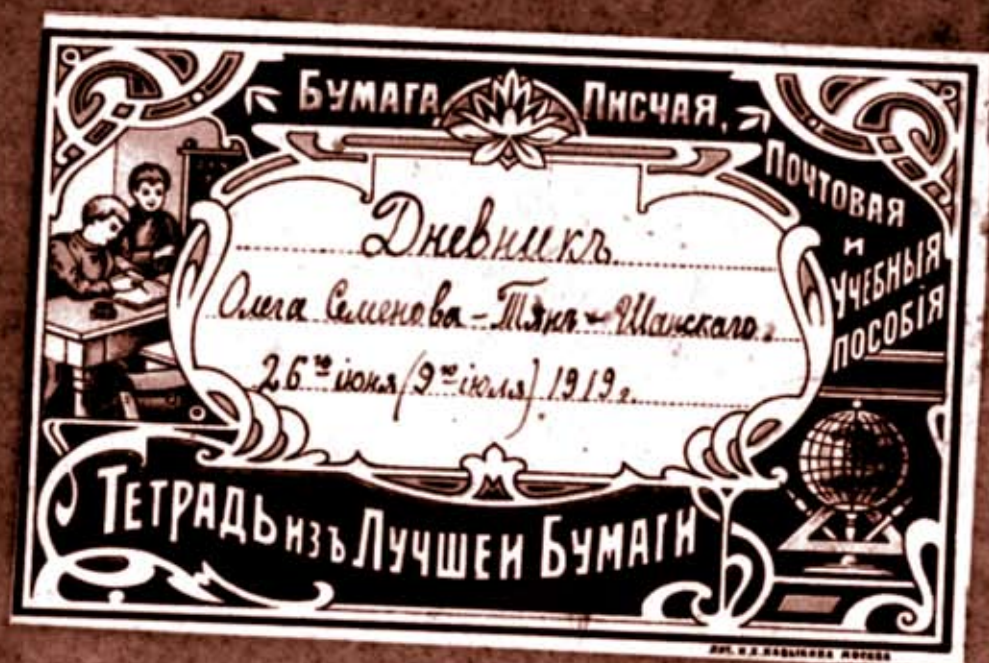 БУМАГА ПИСЧАЯ,
ПОЧТОВАЯ
И
УЧЕБНЫЯ
ПОСОБІЯ
Дневникъ
Олега Семенова-Тянъ-Шанскаго.
26го іюня (9го іюля) 1919 г.
ТЕТРАДЬ ИЗЪ ЛУЧШЕИ БУМАГИ
МОСКВА